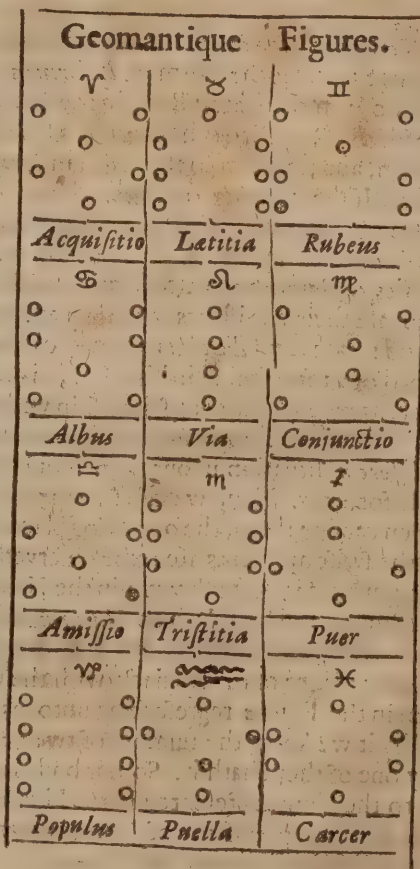 Geomantique Figures.
♈ ♉ ♊
Acquiſitio Lætitia Rubeus
♋ ♌ ♍
Albus Via Conjunctio
♎ ♏ ♐
Amiſſio Triſtitia Puer
♑ ♒ ♓
Populus Puella Carcer